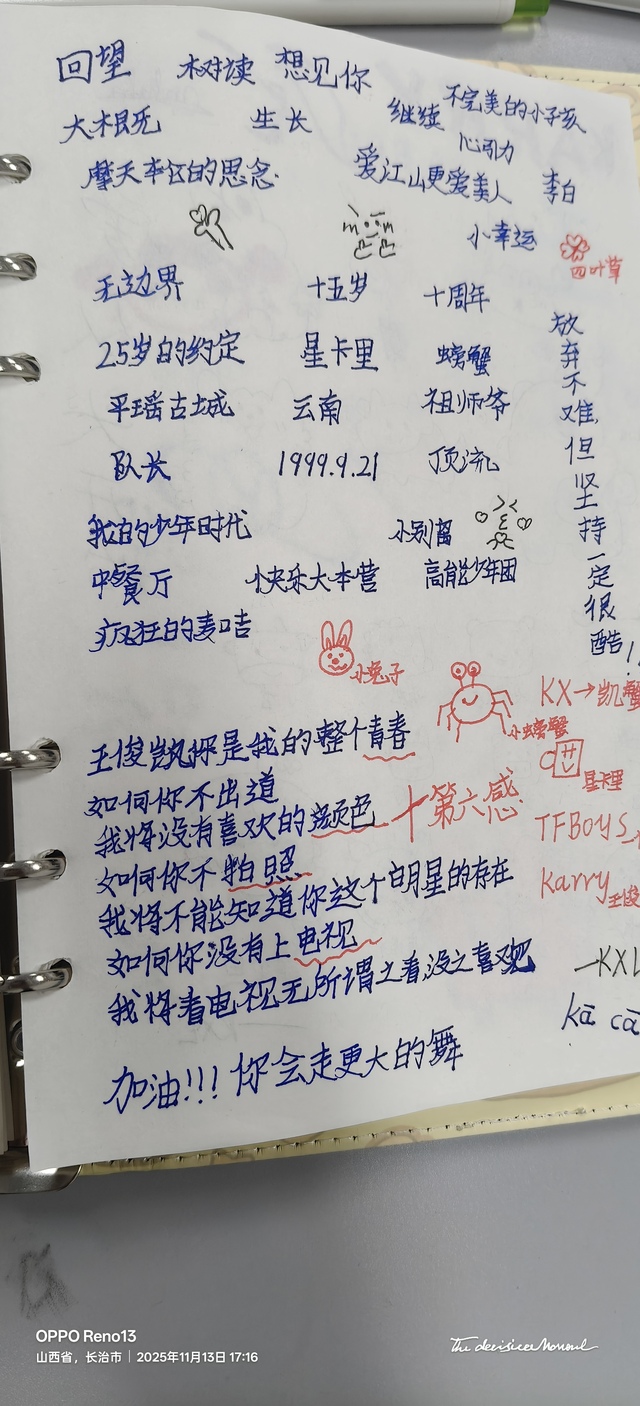 回望 树读 想见你
不完美的小孩
大梦 生长 继续
心引力
摩天 的思念 爱江山更爱美人 李白
小幸运
四叶草
无边界 十五岁 十周年
25岁的约定 星卡里 螃蟹
平瑶古城 云南 祖师爷
队长 1999.9.21 顶流
我的少年时代 小别离
中餐厅 快乐大本营 高能少年团
疯狂的麦咭
放弃不难,但坚持一定很酷!
小兔子
小螃蟹
KX→凯蟹
星卡里
TFBOYS
Karry 王俊
—KXL
kā cā
王俊凯你是我的整个青春
如何你不出道
我将没有喜欢的颜色 十第六感
如何你不拍照
我将不能知道你这个明星的存在
如何你没有上电视
我将看电视无所谓之看,没之喜观
加油!!!你会走更大的舞
OPPO Reno13
山西省,长治市 | 2025年11月13日 17:16
The decisive Moment